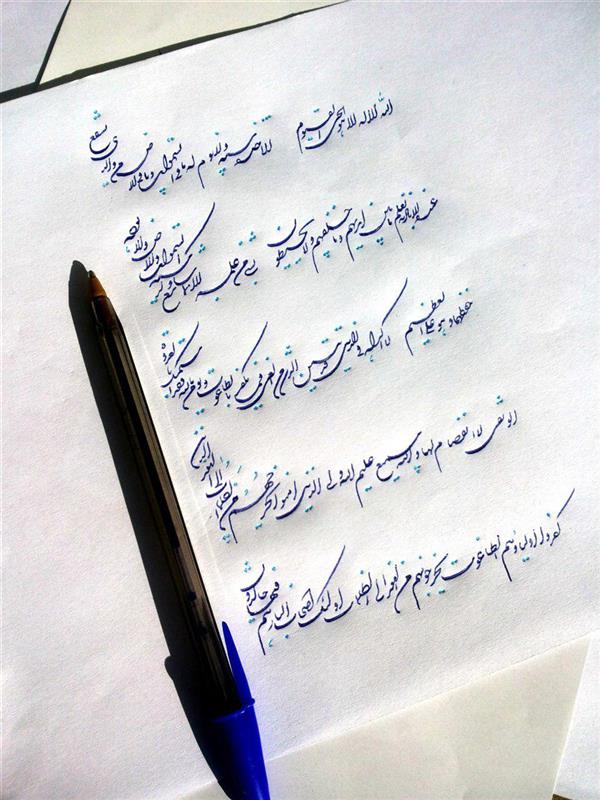 الله لا اله الا هو الحی القیوم لا تاخذه سنة و لا نوم له ما فی السموات و ما فی الارض من ذا الذی یشفع
عنده الا باذنه یعلم ما بین ایدیهم و ما خلفهم و لا یحیطون بشیء من علمه الا بما شاء وسع کرسیه السموات و الارض و لا یوده
حفظهما و هو العلی العظیم لا اکراه فی الدین قد تبین الرشد من الغی فمن یکفر بالطاغوت و یومن بالله فقد استمسک بالعروة
الوثقی لا انفصام لها و الله سمیع علیم الله ولی الذین امنوا یخرجهم من الظلمات الی النور و الذین
کفروا اولیاوهم الطاغوت یخرجونهم من النور الی الظلمات اولئک اصحاب النار هم فیها خالدون